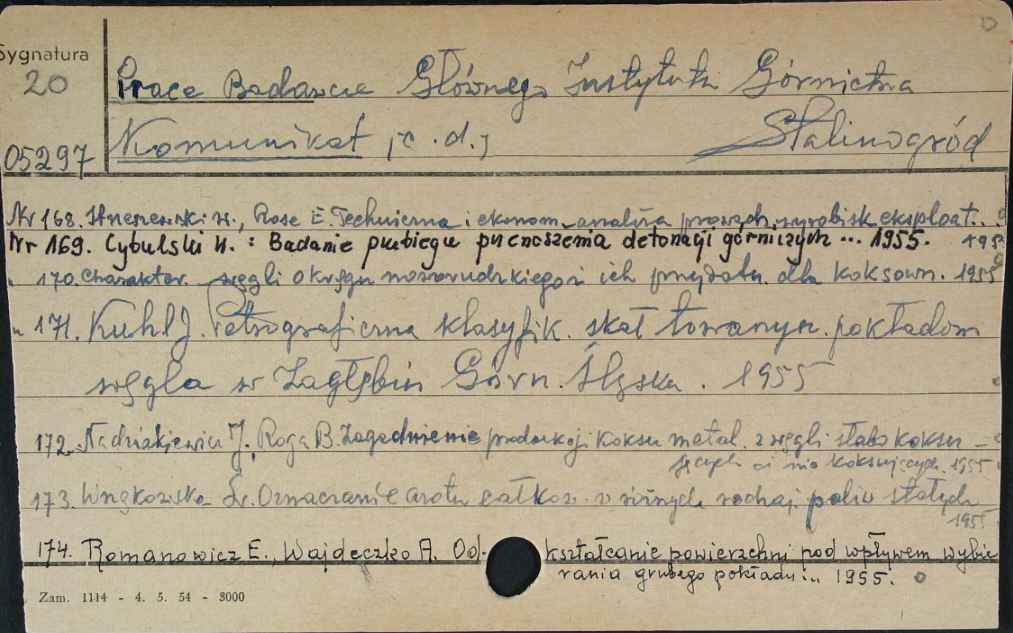 Sygnatura
20
Prace Badawcze Głównego Instytutu Górnictwa
05297
Komunikat /c.d./ Stalinogród
Nr 168. Rose E. Techniczna i ekonom. analiza wyrobisk eksploat...
Nr 169. Cybulski W. : Badanie przebiegu przenoszenia detonacji górniczych ... 1955. 195
" 170. Charakter. węgli okręgu noworudzkiego i ich przydatn. dla koksown. 1955
" 171. Kuhl J. Petrograficzna klasyfik. skał towarzysz. pokładom
węgla w Zagłębiu Górn. Śląska. 1955
172. Nadziakiewicz J., Roga B. Zagadnienie produkcji koksu metal. z węgli słabo koksu-
jących i nie koksujących. 1955
173. Oznaczanie azotu całkow. w różnych rodzaj. paliw stałych
1955
174. Romanowicz E., Wajdeczko A. Od- kształcanie powierzchni pod wpływem wybie
rania grubego pokładu... 1955.
Zam. 1114 - 4. 5. 54 - 3000